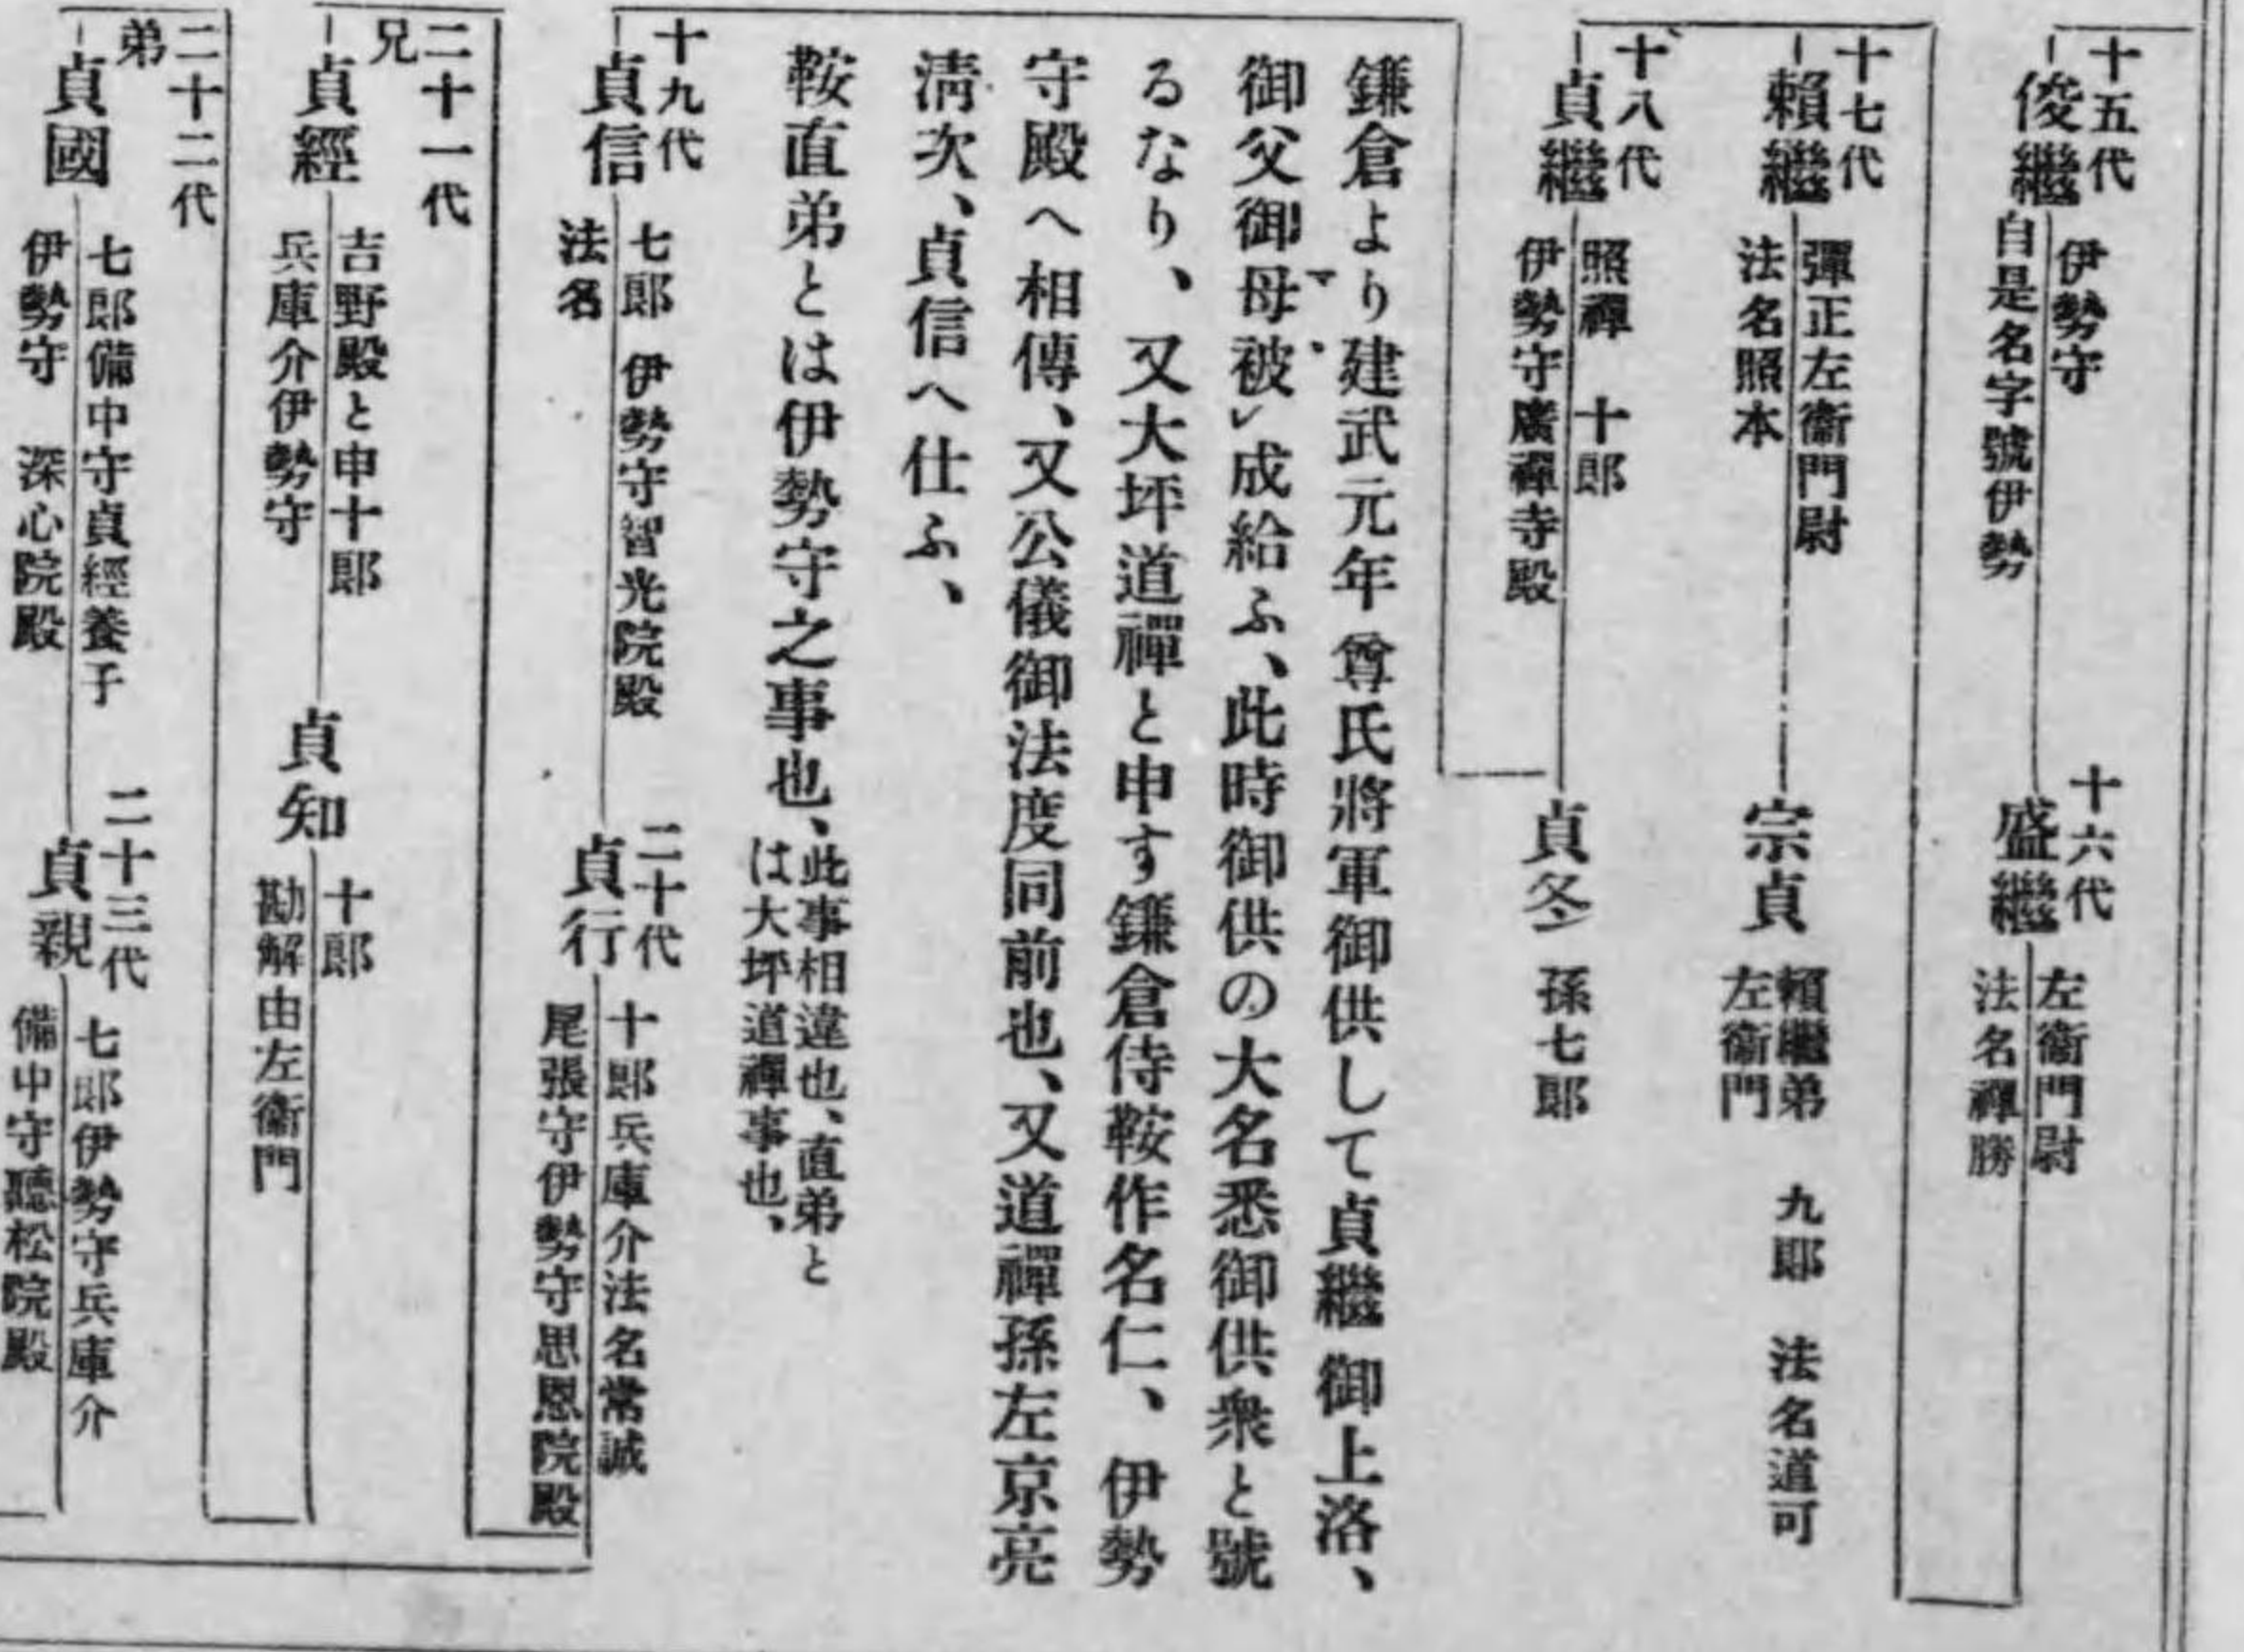 十五代
俊繼
伊勢守
自是名字號伊勢
十六代
盛繼
左衞門尉
法名禪勝
十七代
賴繼
彈正左衞門尉
法名照本
宗貞
賴繼弟 九郎 法名道可
左衞門
十八代
貞繼
照禪 十郎
伊勢守廣禪寺殿
貞冬
孫七郎
鎌倉より建武元年尊氏將軍御供して貞繼御上洛、
御父御母被レ成給ふ、此時御供の大名悉御供衆と號
るなり、又大坪道禪と申す鎌倉侍鞍作名仁、伊勢
守殿へ相傳、又公儀御法度同前也、又道禪孫左京亮
淸次、貞信へ仕ふ、
鞍直弟とは伊勢守之事也、
此事相違也、直弟と
は大坪道禪事也、
十九代
貞信
七郎 伊勢守智光院殿
法名
二十代
貞行
十郎兵庫介法名常誠
尾張守伊勢守思恩院殿
二十一代
兄
貞經
吉野殿と申十郎
兵庫介伊勢守
貞知
十郎
勘解由左衞門
二十二代
弟
貞國
七郎備中守貞經養子
伊勢守 深心院殿
二十三代
貞親
七郎伊勢守兵庫介
備中守聽松院殿